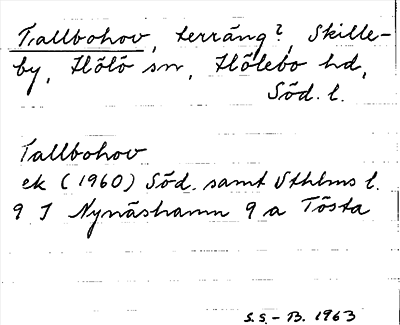 Tallbohov, terräng?, Skille-
by, Hölö sn, Hölebo hd,
Söd. l.
Tallbohov
ek (1960) Söd. samt Sthlms l.
9 I Nynäshamn 9 a Tösta
S.S. - B. 1963